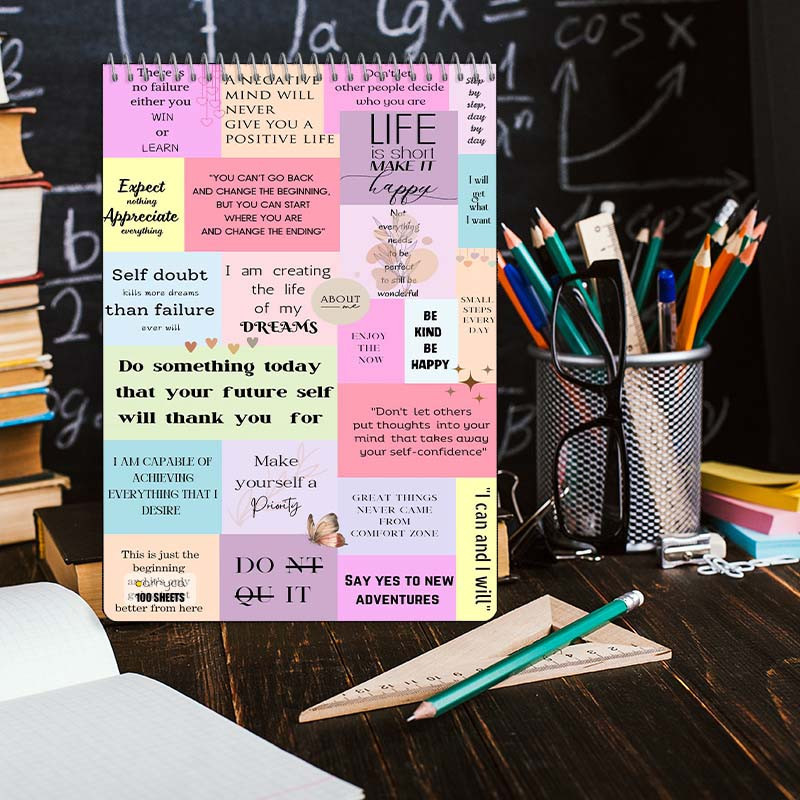 There is
no failure
either you
WIN
or
LEARN
A NEGATIVE
MIND WILL
NEVER
GIVE YOU A
POSITIVE LIFE
Don't let
other people decide
who you are
Step
by
step,
day
by
day
LIFE
is short
MAKE IT
happy
Expect
nothing
Appreciate
everything
"YOU CAN'T GO BACK
AND CHANGE THE BEGINNING,
BUT YOU CAN START
WHERE YOU ARE
AND CHANGE THE ENDING"
I will
get
what
I want
Not
everything
needs
to be
perfect
to still be
wonderful
Self doubt
kills more dreams
than failure
ever will
I am creating
the life
of my
DREAMS
ABOUT
me
SMALL
STEPS
EVERY
DAY
ENJOY
THE
NOW
BE
KIND
BE
HAPPY
Do something today
that your future self
will thank you for
"Don't let others
put thoughts into your
mind that takes away
your self-confidence"
I AM CAPABLE OF
ACHIEVING
EVERYTHING THAT I
DESIRE
Make
yourself a
Priority
GREAT THINGS
NEVER CAME
FROM
COMFORT ZONE
"I can and I will"
This is just the
beginning
100 SHEETS
better from here
DO NT
QU IT
SAY YES TO NEW
ADVENTURES
cos x